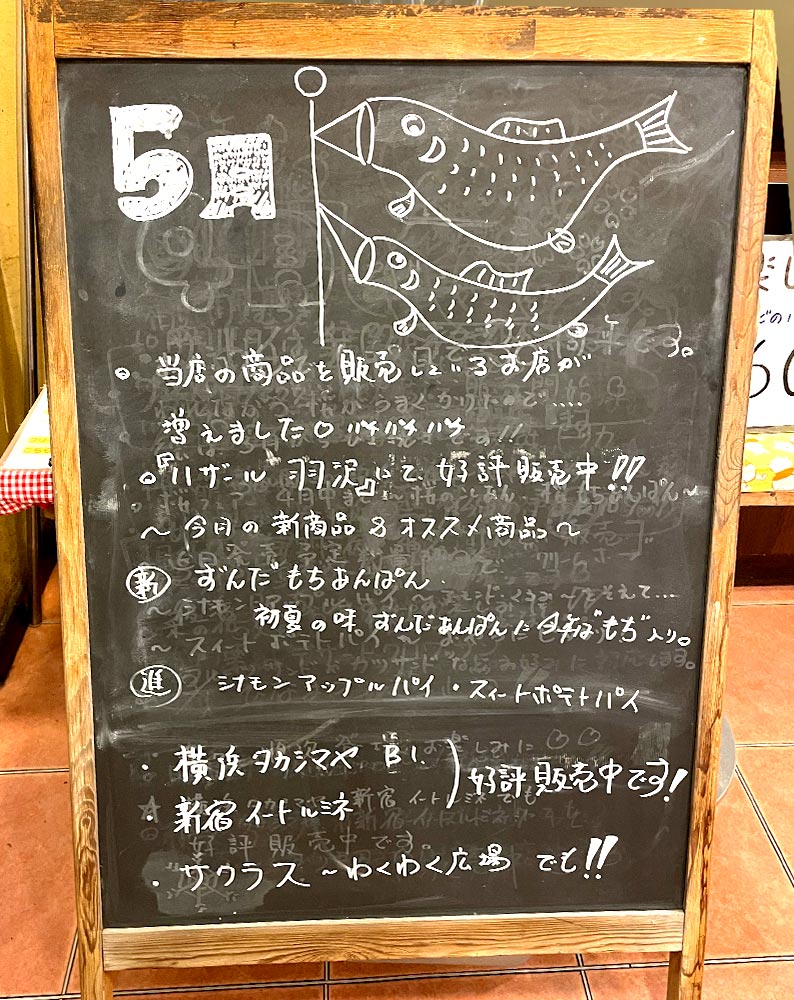 5月
。当店の商品を販売しているお店が
増えました○ パチパチパチ
。『ハザール 羽沢』にて 好評販売中!!
～今月の新商品&オススメ商品～
新 ずんだもちあんぱん
初夏の味 ずんだあんぱんに今年は"もち"入り。
進 シナモンアップルパイ・スイートポテトパイ
・横浜タカシマヤ B1.
・新宿イートルミネ
好評販売中です!
・サクラス ～わくわく広場 でも!!